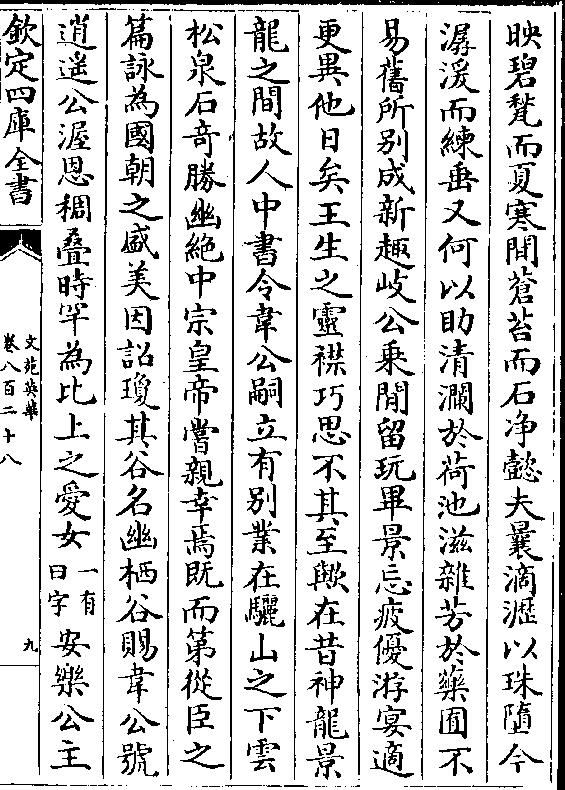 映碧甃而夏寒間蒼苔而石净懿夫曩滴瀝以珠墮今
潺湲而練垂又何以助清瀾於荷池滋雜芳於藥囿不
易舊所别成新趣岐公乗閒留玩畢景忘疲優游宴適
更異他日矣王生之靈襟巧思不其至歟在昔神龍景
龍之間故人中書令韋公嗣立有别業在驪山之下雲
松泉石竒勝幽絶中宗皇帝嘗親幸焉既而第從臣之
篇詠為國朝之盛美因詔瓊其谷名幽栖谷賜韋公號
逍遥公渥恩稠叠時罕為比上之愛女一有曰字安樂公主
欽定四庫全書
文苑英華
卷八百二十八
九